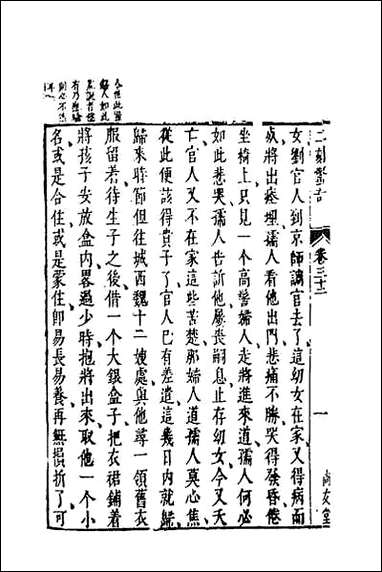 二刻驚奇
卷三十二
一
尚友堂
女劉官人到京師調官去了這幼女在家又得病而
夭將出瘞埋孺人看他出門悲痛不勝哭得發昏倦
坐椅上只見一个高髻婦人走將進來道孺人何必
如此悲哭孺人告訴他屢喪嗣息止存幼女今又夭
亡官人又不在家這些苦楚那婦人道孺人莫心焦
從此便該得貴子了官人已有差遣這幾日內就歸
歸來時節但往城西魏十二嫂處與他尋一領舊衣
服留着待生子之後借一个大銀盒子把衣裙鋪着
將孩子安放盒內畧過少時抱將出來取他一个小
名或是合住或是蒙住卽易長易養再無損折了可